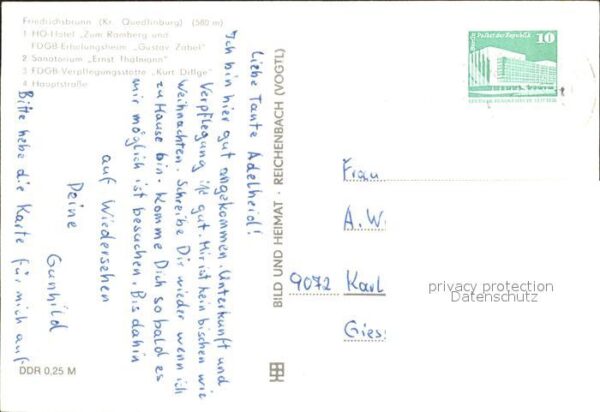 Friedrichsbrunn (Kr. Quedlinburg) (580 m)
1 HO-Hotel „Zum Ramberg und
FDGB-Erholungsheim „Gustav Zabel“
2 Sanatorium „Ernst Thälmann“
3 FDGB-Verpflegungsstätte „Kurt Dillge“
4 Hauptstraße
Liebe Tante Adelheid!
Ich bin hier gut angekommen. Unterkunft und
Verpflegung ist gut. Mir ist kein bischen wie
Weihnachten. Schreibe Dir wieder wenn ich
zu Hause bin. Komme Dich so bald es
mir möglich ist besuchen. Bis dahin
auf Wiedersehen
Deine
Gunhild
Bitte hebe die Karte für mich auf.
DDR 0,25 M
BILD UND HEIMAT · REICHENBACH (VOGTL)
Berlin Palast der Republik
10
DEUTSCHE DEMOKRATISCHE REPUBLIK
Frau
A. W.
9072 Karl
Gies
privacy protection
Datenschutz